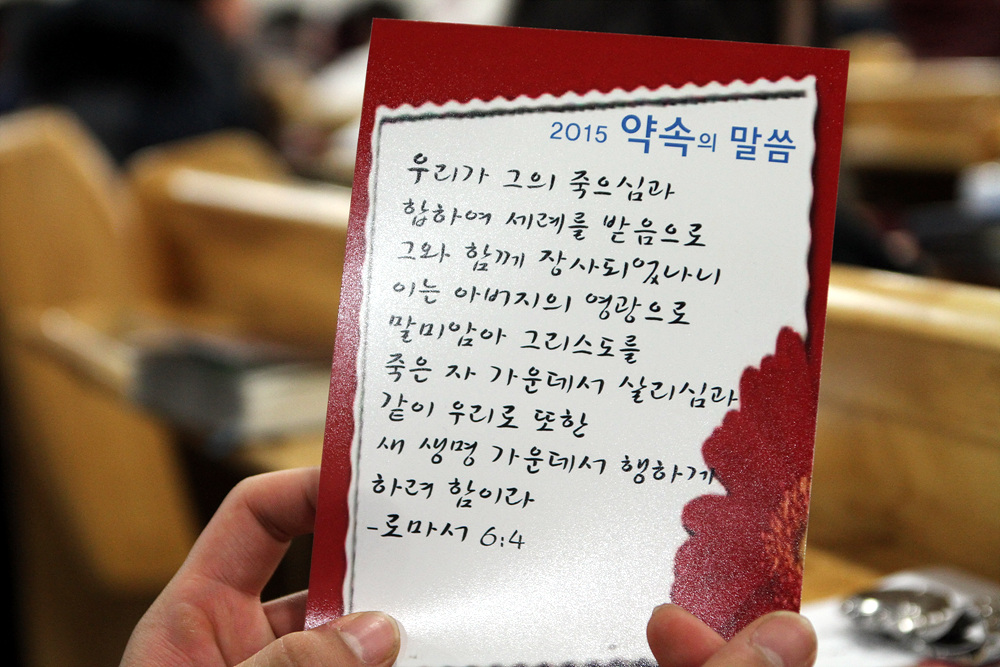 2015 약속의 말씀
우리가 그의 죽으심과
합하여 세례를 받음으로
그와 함께 장사되었나니
이는 아버지의 영광으로
말미암아 그리스도를
죽은 자 가운데서 살리심과
같이 우리로 또한
새 생명 가운데서 행하게
하려 함이라
-로마서 6:4